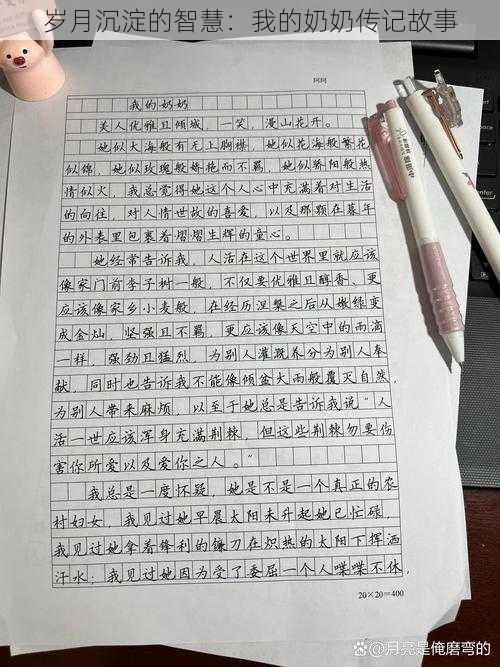 岁月沉淀的智慧：我的奶奶传记故事
阿阿
我的奶奶
美人优雅且倾城，一笑，漫山花开。
她似大海般有无上胸襟，她似花海般繁花
似锦，她似玫瑰般娇艳而不羁，她似骄阳般热
情似火，我总觉得她这个人心中充满着对生活
的向往，对人情世故的喜爱，以及那颗在暮年
的外表里包裹着熠熠生辉的童心。
她经常告诉我，人活在这个世界里就应该
像家门前李子树一般，不仅要优雅且醇香、更
应该像家乡小麦般，在经历涅槃之后从嫩绿变
成金灿，坚强且不羁，更应该像天空中的雨滴
一样，强劲且猛烈，为别人灌溉养分为别人奉
献，同时也告诉我不能像倾盆大雨般覆灭自然，
为别人带来麻烦，以至于她总是告诉我说“人
活一世应该浑身充满荆棘，但这些荆棘勿要伤
害你所爱以及爱你之人。”
我总是一度怀疑，她是不是一个真正的农
村妇女，我见过她早晨太阳未升起她已忙碌，
我见过她拿着锋利的镰刀在炽热的太阳下挥洒
汗水；我见过她因为受了委屈一个人喋喋不休，
20×20=400
@月亮是俺磨弯的